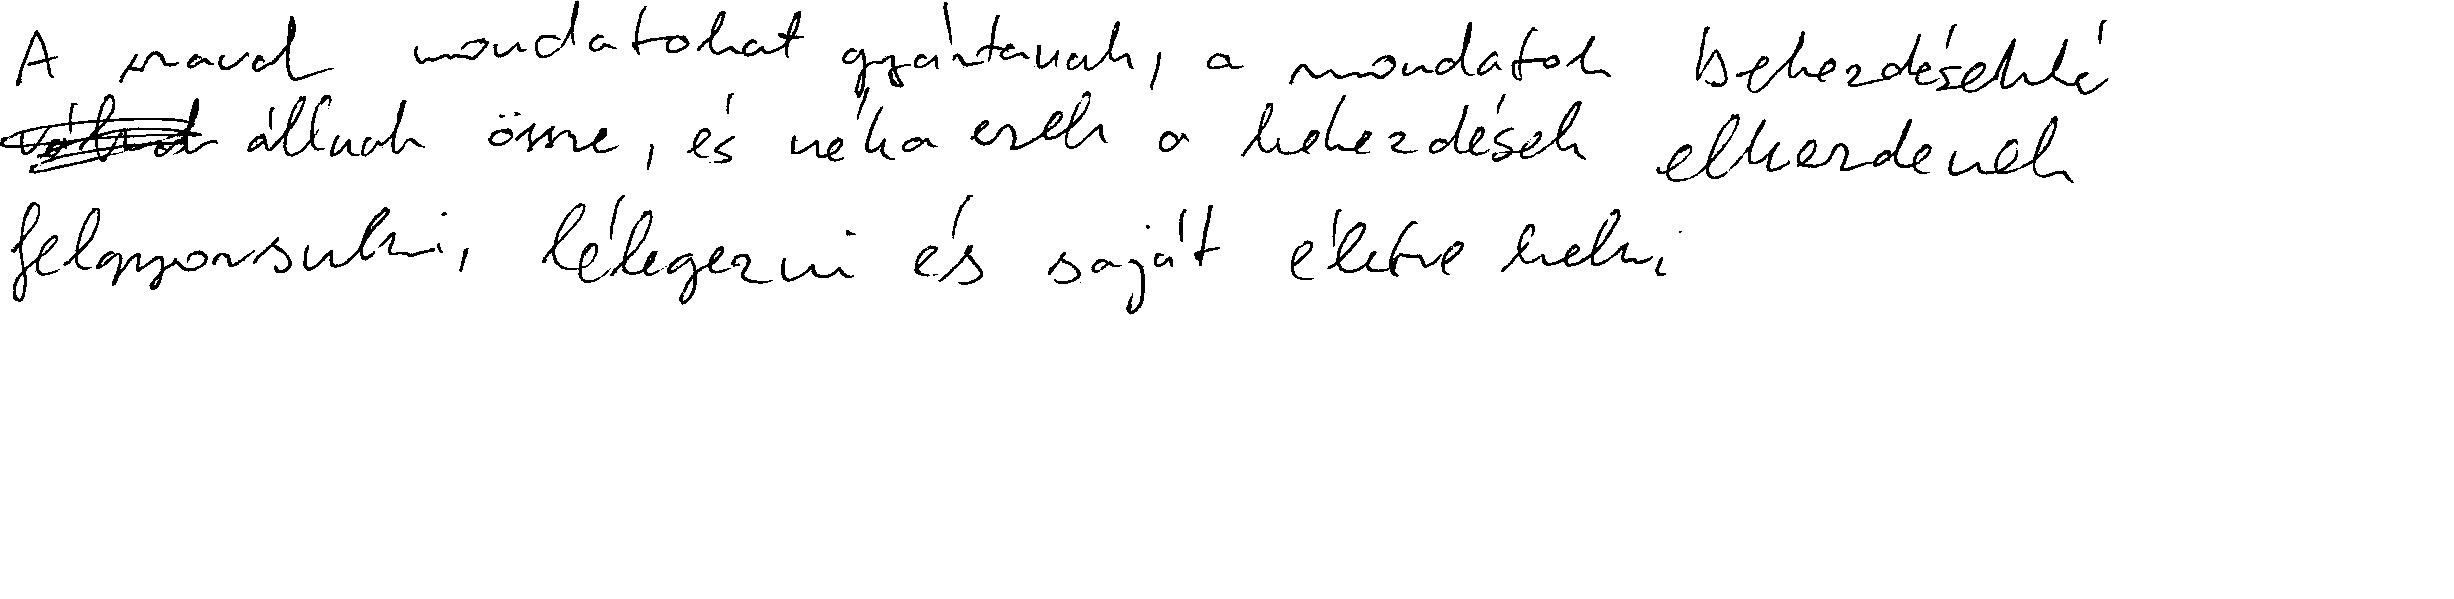 A szavak mondatokat gyártanak, a mondatok bekezdésekké
állnak össze, és néha ezek a bekezdések elkezdenek
felgyorsulni, lélegezni és saját életre kelni